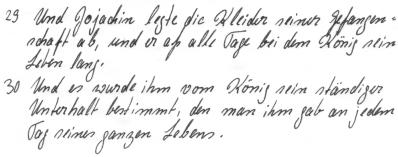 29 Und Jojachin legte die Kleider seiner Gefangen=
schaft ab, und er aß alle Tage bei dem König sein
Leben lang.
30 Und es wurde ihm vom König sein ständiger
Unterhalt bestimmt, den man ihm gab an jedem
Tag seines ganzen Lebens.